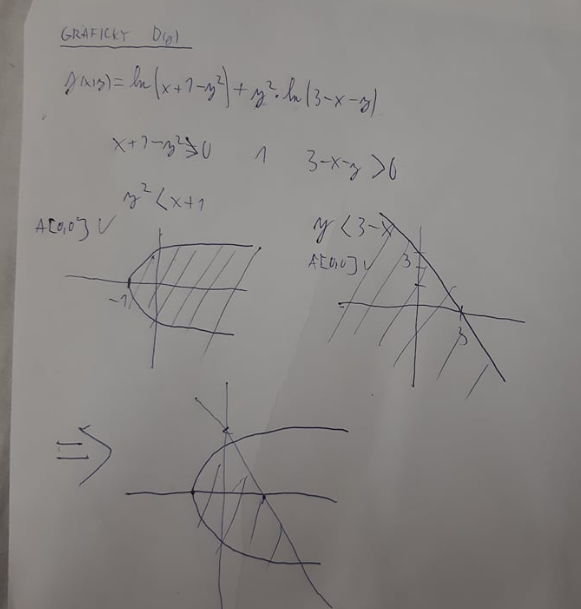 GRAFICKY D(f)
f(x,y) = ln(x+1-y²) + y²·ln(3-x-y)
x+1-y²>0 ∧ 3-x-y>0
y² < x+1
A[0,0] ✓
y < 3-x
A[0,0] ✓
3
-1
3
⇒